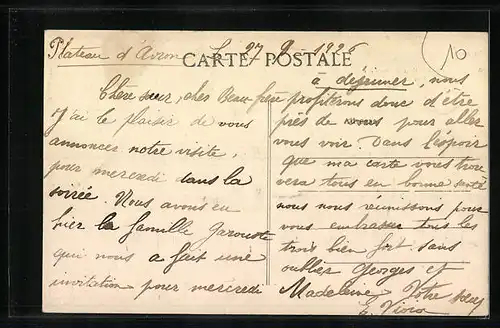 Plateau d'Avron Le 27 9 1926
CARTE POSTALE
10
Chère sœur, cher Beau-frère
J'ai le plaisir de vous
annoncer notre visite,
pour mercredi dans la
soirée. Nous avons eu
hier la famille Garouste
qui nous a fait une
invitation pour mercredi
à déjeuner, nous
profiterons donc d'être
près de vous pour aller
vous voir. Dans l'espoir
que ma carte vous trou
vera tous en bonne santé
nous nous réunissons pour
vous embrasser tous les
trois bien fort sans
oublier Georges et
Madeleine, Votre sœur
E.